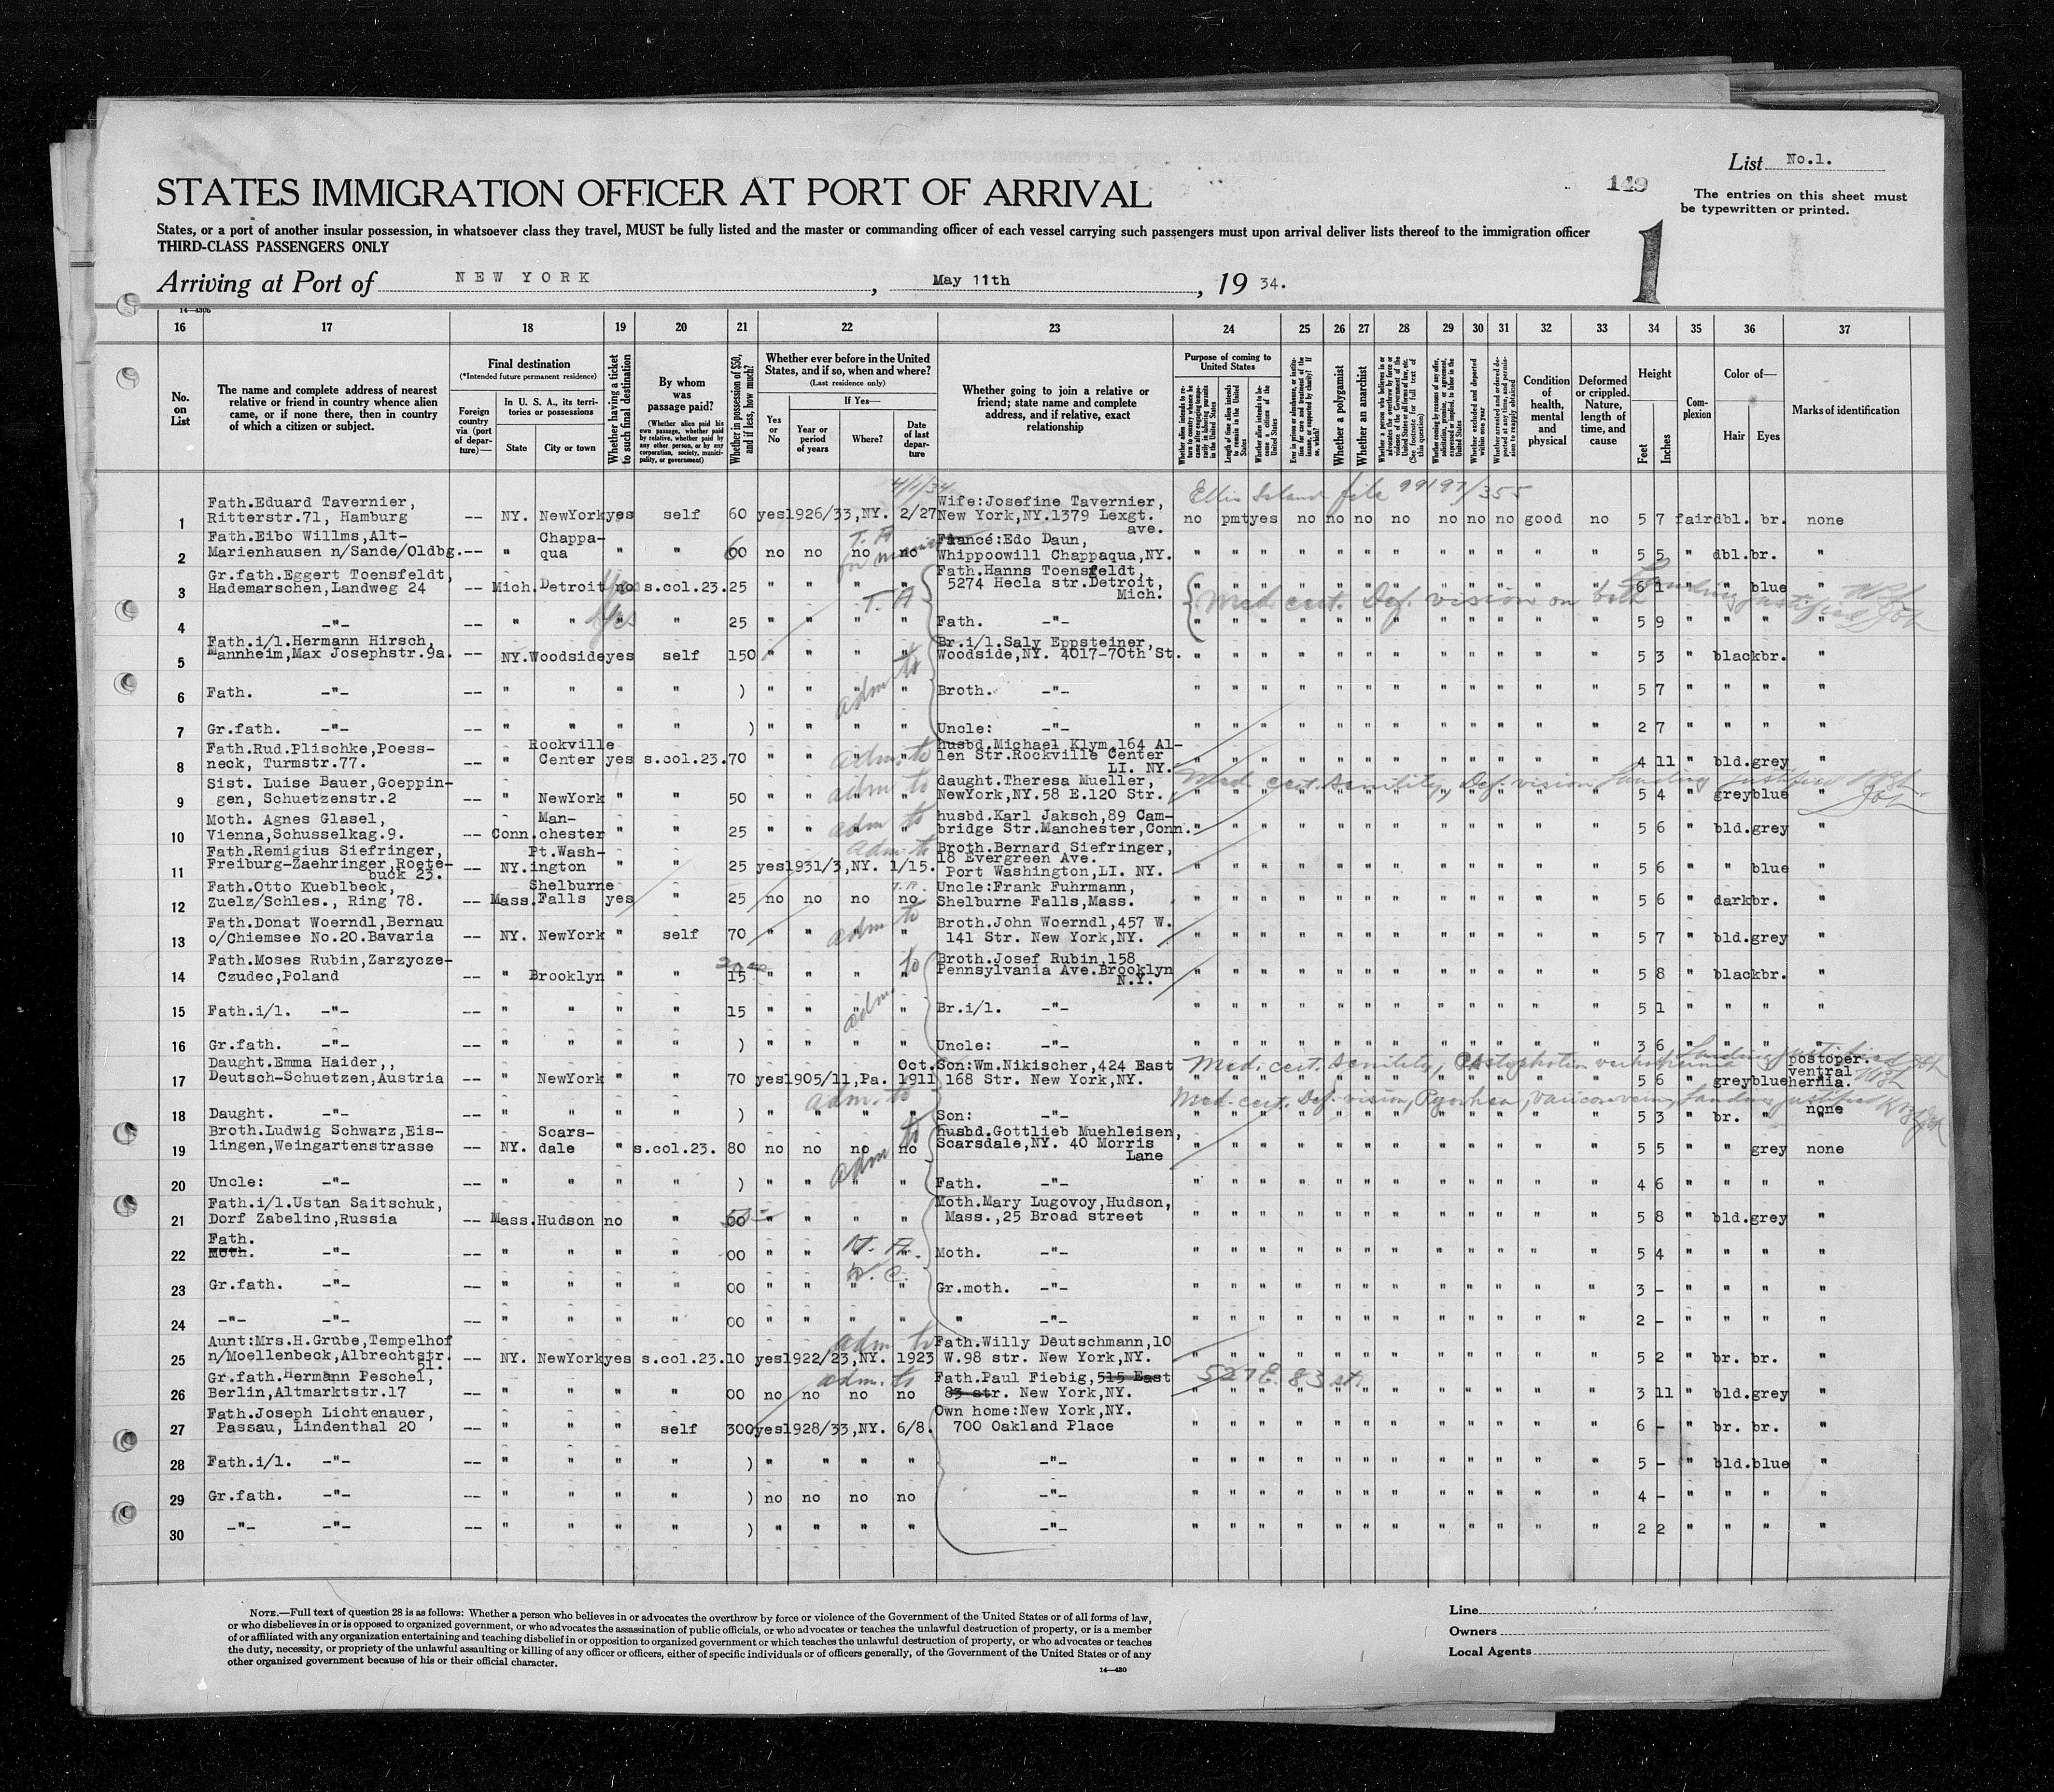 List No.1.
149
The entries on this sheet must
be typewritten or printed.
1
STATES IMMIGRATION OFFICER AT PORT OF ARRIVAL
States, or a port of another insular possession, in whatsoever class they travel, MUST be fully listed and the master or commanding officer of each vessel carrying such passengers must upon arrival deliver lists thereof to the immigration officer
THIRD-CLASS PASSENGERS ONLY
Arriving at Port of NEW YORK, May 11th, 19 34.
14—430b
16 17 18 19 20 21 22 23 24 25 26 27 28 29 30 31 32 33 34 35 36 37
No. on List
The name and complete address of nearest
relative or friend in country whence alien
came, or if none there, then in country
of which a citizen or subject.
Final destination
(*Intended future permanent residence)
Foreign country via (port of departure)—
In U. S. A., its territories or possessions
State
City or town
Whether having a ticket to such final destination
By whom was passage paid?
(Whether alien paid his own passage, whether paid by relative, whether paid by any other person, or by any corporation, society, municipality, or government)
Whether in possession of $50, and if less, how much?
Whether ever before in the United States, and if so, when and where?
(Last residence only)
Yes or No
If Yes—
Year or period of years
Where?
Date of last departure
Whether going to join a relative or
friend; state name and complete
address, and if relative, exact
relationship
Purpose of coming to United States
Whether a polygamist
Whether an anarchist
Condition of health, mental and physical
Deformed or crippled. Nature, length of time, and cause
Height
Feet
Inches
Complexion
Color of—
Hair
Eyes
Marks of identification
4/1/34
Ellis Island file 99197/355
1 Fath.Eduard Tavernier, Ritterstr.71, Hamburg -- NY. NewYork yes self 60 yes 1926/33,NY. 2/27 Wife:Josefine Tavernier, New York,NY.1379 Lexgt. ave. no pmt yes no no no no no no no good no 5 7 fair dbl. br. none
2 Fath.Eibo Willms,Alt-Marienhausen n/Sande/Oldbg. -- " Chappa-qua " " 60 no no no no Fiancé:Edo Daun, Whippoowill Chappaqua,NY. 5 5 " dbl. br. "
T. A
3 Gr.fath.Eggert Toensfeldt, Hademarschen, Landweg 24 -- Mich. Detroit no s.col.23. 25 " " " " Fath.Hanns Toensfeldt, 5274 Hecla str.Detroit, Mich. 6 1 " " blue "
yes
T. A
Med cert. Def. vision on both Landing justified
4 -"- -- " " " " 25 " " " " Fath. -"- 5 9 " " " "
yes
5 Fath.i/l.Hermann Hirsch, Mannheim,Max Josephstr.9a. -- NY. Woodside yes self 150 " " " " Br.i/l.Saly Eppsteiner, Woodside,NY. 4017-70th St. 5 3 " black br. "
adm. to
6 Fath. -"- -- " " " " ) " " " " Broth. -"- 5 7 " " " "
7 Gr.fath. -"- -- " " " " ) " " " " Uncle: -"- 2 7 " " " "
8 Fath.Rud.Plischke,Poess-neck, Turmstr.77. -- " Rockville Center yes s.col.23. 70 " " " " husbd.Michael Klym,164 Al-len Str.Rockville Center LI. NY. 4 11 " bld. grey "
adm. to
9 Sist. Luise Bauer,Goeppin-gen, Schuetzenstr.2 -- " NewYork " " 50 " " " " daught.Theresa Mueller, NewYork,NY.58 E.120 Str. 5 4 " grey blue "
adm to
Med cert. Senility, Def. vision Landing justified
10 Moth. Agnes Glasel, Vienna,Schusselkag.9. -- Conn. Man-chester " " 25 " " " " husbd.Karl Jaksch,89 Cam-bridge Str.Manchester,Conn. 5 6 " bld. grey "
adm to
11 Fath.Remigius Siefringer, Freiburg-Zaehringer,Roete-buck 23. -- NY. Pt.Wash-ington " " 25 yes 1931/3,NY. 1/15. Broth.Bernard Siefringer, 18 Evergreen Ave. Port Washington,LI. NY. 5 6 " " blue "
adm. to
12 Fath.Otto Kueblbeck, Zuelz/Schles., Ring 78. -- Mass. Shelburne Falls yes " 25 no no no no Uncle:Frank Fuhrmann, Shelburne Falls,Mass. 5 6 " dark br. "
T. A.
13 Fath.Donat Woerndl,Bernau o/Chiemsee No.20.Bavaria -- NY. NewYork " self 70 " " " " Broth.John Woerndl,457 W. 141 Str. New York,NY. 5 7 " bld. grey "
adm to
14 Fath.Moses Rubin,Zarzycze-Czudec,Poland -- " Brooklyn " " 15 " " " " Broth.Josef Rubin,158 Pennsylvania Ave.Brooklyn N.Y. 5 8 " black br. "
adm. to
15 Fath.i/l. -"- -- " " " " 15 " " " " Br.i/l. -"- 5 1 " " " "
16 Gr.fath. -"- -- " " " " ) " " " " Uncle: -"- 3 6 " " " "
17 Daught.Emma Haider,, Deutsch-Schuetzen,Austria -- " NewYork " " 70 yes 1905/11,Pa. Oct. 1911 Son:Wm.Nikischer,424 East 168 Str. New York,NY. 5 6 " grey blue postoper. ventral hernia.
Med. cert. Senility, Landing justified
adm. to
Med cert. Def vision, Pyorrhea, Landing justified
18 Daught. -"- -- " " " " ) " " " " Son: -"- 5 3 " br. " none
19 Broth.Ludwig Schwarz,Eis-lingen,Weingartenstrasse -- NY. Scars-dale " s.col.23. 80 no no no no husbd.Gottlieb Muehleisen, Scarsdale,NY. 40 Morris Lane 5 5 " " grey none
adm to
20 Uncle: -"- -- " " " " ) " " " " Fath. -"- 4 6 " " " "
21 Fath.i/l.Ustan Saitschuk, Dorf Zabelino,Russia -- Mass. Hudson no " 00 " " " " Moth.Mary Lugovoy,Hudson, Mass.,25 Broad street 5 8 " bld. grey "
22 Fath. Moth. -"- -- " " " " 00 " " " " Moth. -"- 5 4 " " " "
23 Gr.fath. -"- -- " " " " 00 " " " " Gr.moth. -"- 3 - " " " "
24 -"- -"- -- " " " " 00 " " " " " -"- 2 - " " " "
25 Aunt:Mrs.H.Grube,Tempelhof n/Moellenbeck,Albrechtstr. 51. -- NY. NewYork yes s.col.23. 10 yes 1922/23,NY. 1923 Fath.Willy Deutschmann,10 W.98 str. New York,NY. 5 2 " br. br. "
adm to
26 Gr.fath.Hermann Peschel, Berlin,Altmarktstr.17 -- " " " " 00 no no no no Fath.Paul Fiebig,515 East 83 str. New York,NY. 3 11 " bld. grey "
adm. to
527 E. 83 st.
27 Fath.Joseph Lichtenauer, Passau, Lindenthal 20 -- " " " self 300 yes 1928/33,NY. 6/8. Own home:New York,NY. 700 Oakland Place 6 - " br. br. "
28 Fath.i/l. -"- -- " " " " ) " " " " -"- 5 - " bld. blue "
29 Gr.fath. -"- -- " " " " ) no no no no -"- 4 - " " " "
30 -"- -"- -- " " " " ) " " " " -"- 2 2 " " " "
NOTE.—Full text of question 28 is as follows: Whether a person who believes in or advocates the overthrow by force or violence of the Government of the United States or of all forms of law,
or who disbelieves in or is opposed to organized government, or who advocates the assassination of public officials, or who advocates or teaches the unlawful destruction of property, or is a member
of or affiliated with any organization entertaining and teaching disbelief in or opposition to organized government or which teaches the unlawful destruction of property, or who advocates or teaches
the duty, necessity, or propriety of the unlawful assaulting or killing of any officer or officers, either of specific individuals or of officers generally, of the Government of the United States or of any
other organized government because of his or their official character.
14—430
Line
Owners
Local Agents